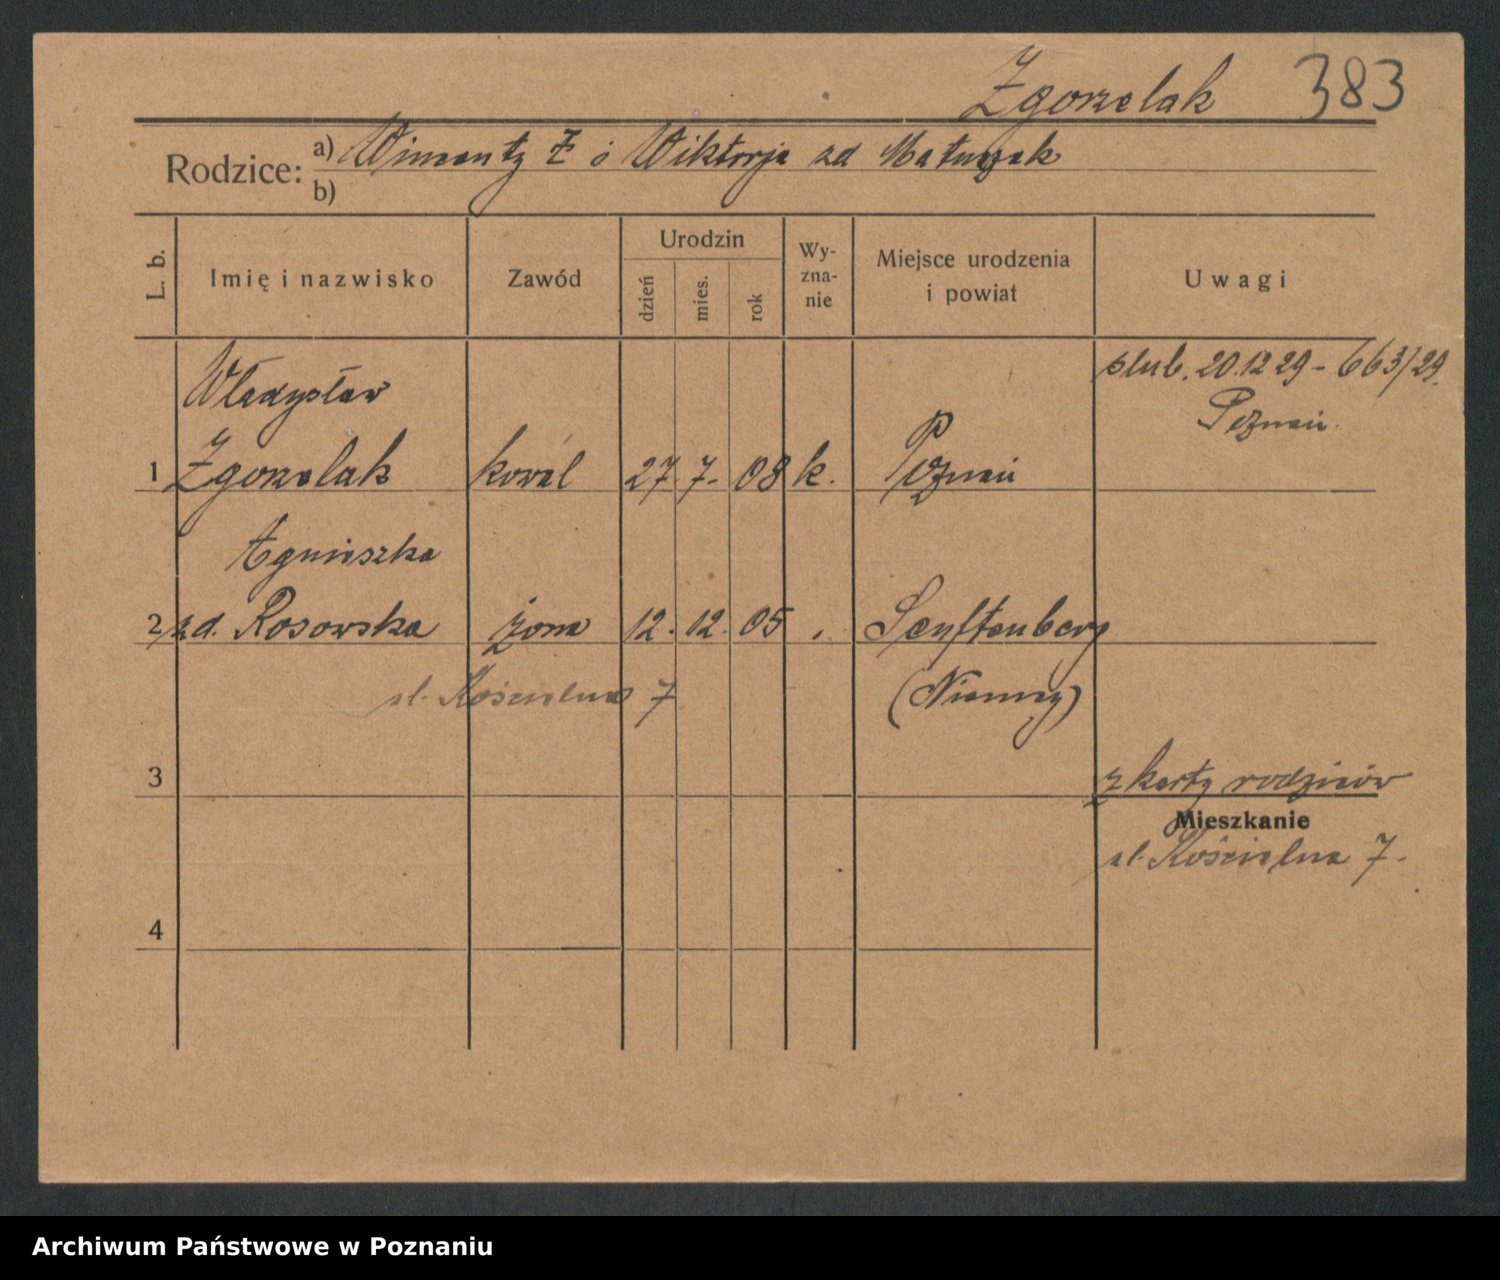 Zgorzelak 383
Rodzice: a) Wincenty Z i Wiktorja zd Matuszak
b)
L. b. Imię i nazwisko Zawód Urodzin dzień mies. rok Wy-zna-nie Miejsce urodzenia i powiat Uwagi
ślub. 20.12 29 - 663/29.
Poznań.
Władysław
1 Zgorzelak kowal 27 7. 08 k. Poznań
Agnieszka
2 zd. Rosowska żona 12. 12. 05 Senftenberg
ul. Kościelna 7 (Niemcy)
3 z karty rodziców
Mieszkanie
ul. Kościelna 7.
4
Archiwum Państwowe w Poznaniu